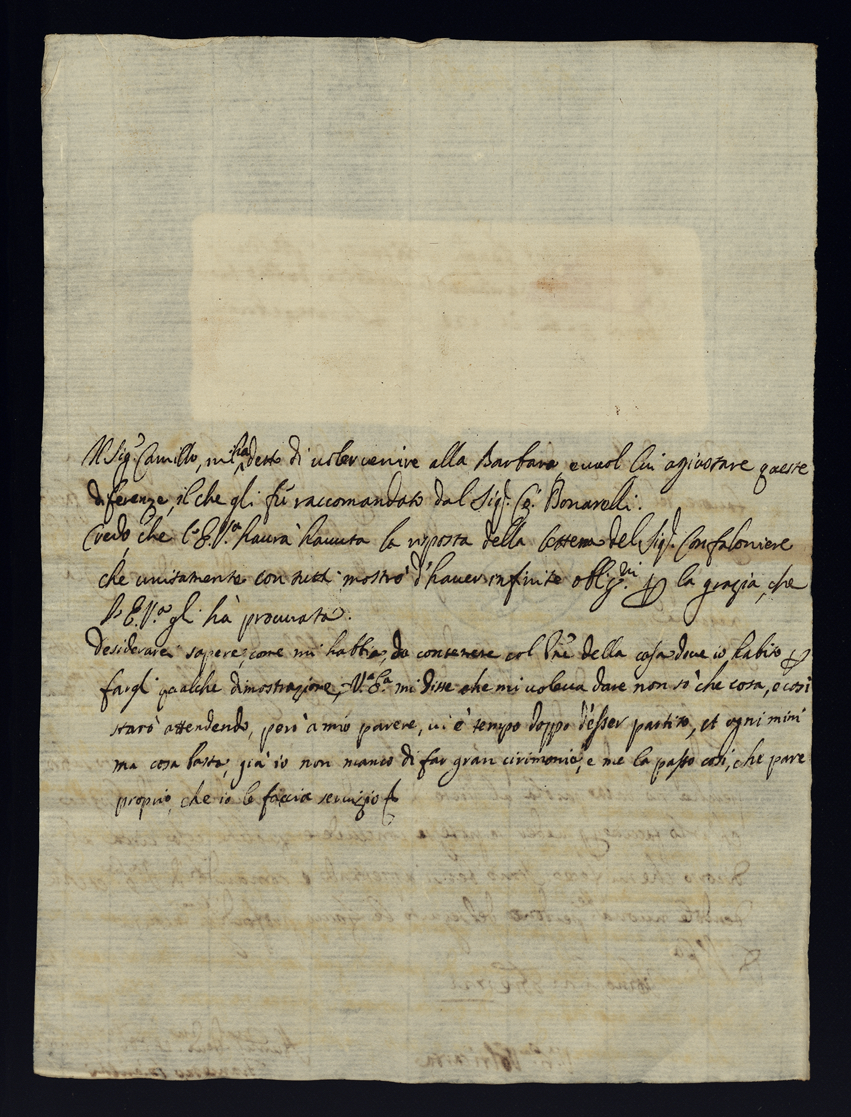 Il Sig.r Camillo, mi hà detto di voler venire alla Barbara, e vuol lui agiustare queste
diferenze, il che gli fù raccomandato dal Sig.r Co. Bonarelli.
Credo, che l'E.V.a haurà hauuta la risposta della lettera del Sig.r Confaloniere
che unitamente con tutti, mostrò d'hauer infinite oblig.ni per la grazia, che
l'E.V.a gli hà procurata.
Desiderarei sapere, come mi habbia, da contenere col della casa doue io habito per
fargli qualche dimostrazione, V.a E.a mi disse che mi voleua dare non sò che cosa, e così
starò attendendo, però à mio parere, vi è tempo doppo d'esser partito, et ogni mini
ma cosa basta, già io non manco di far gran cirimonie, e me la passo così, che pare
proprio, che io le faccia seruizio